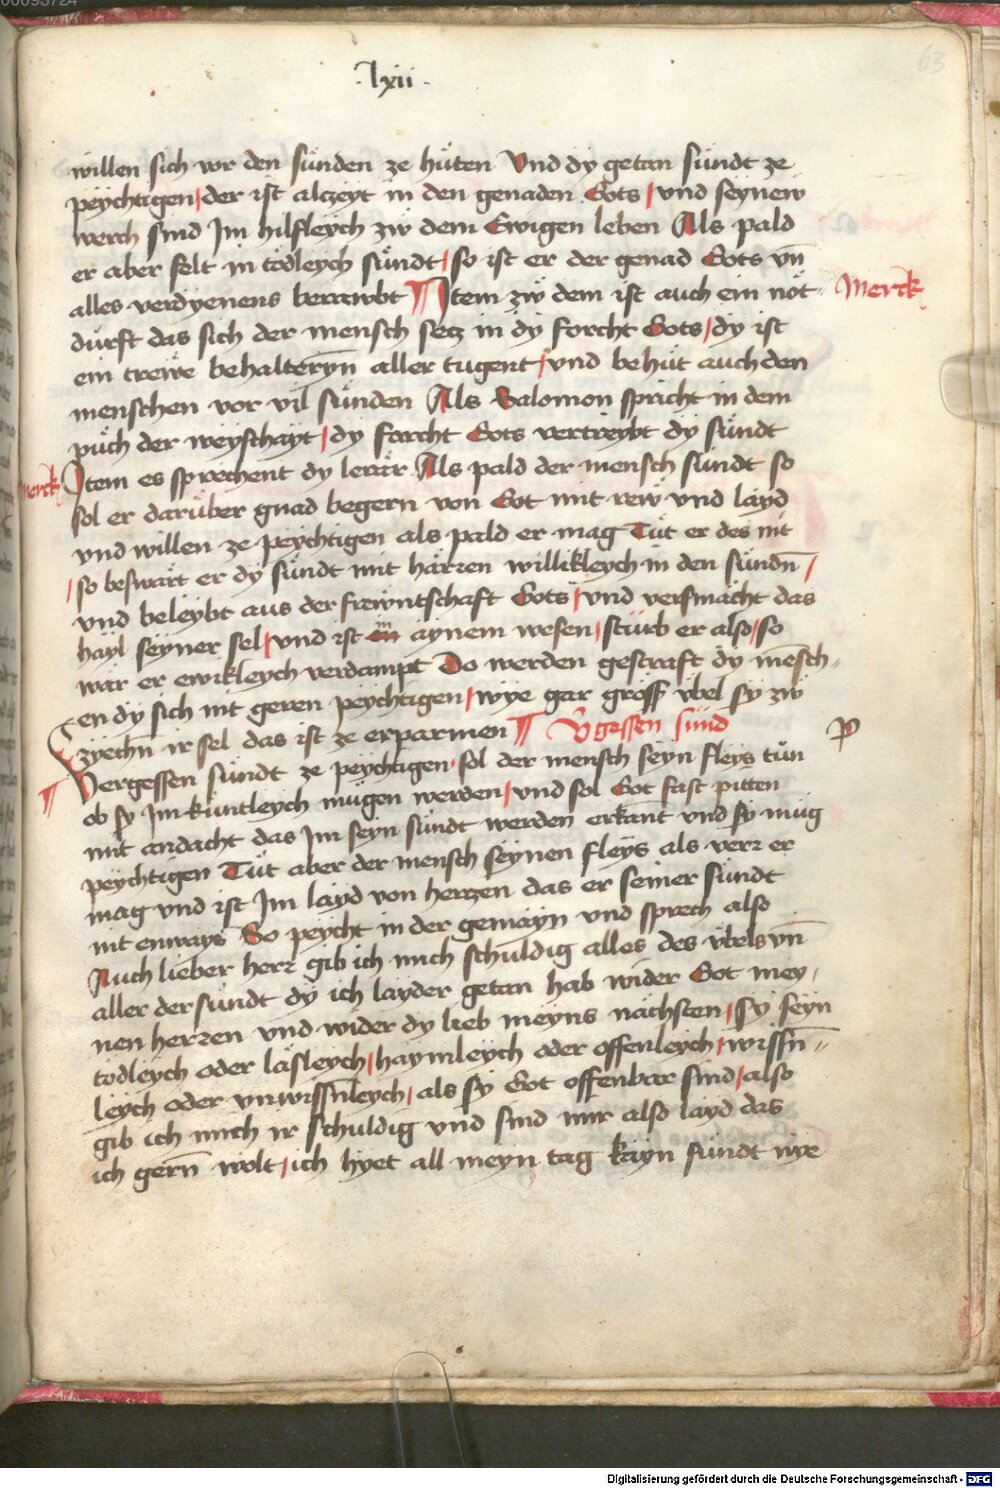 00093724
·lxii·
63
willen sich vor den sünden ze hüten Vnd dy getan sündt ze
peychtigen / der ist alczeyt in den genaden Gots / vnd seynew
werch sind Im hilfleych zw dem Ewigen leben Als pald
er aber felt in tödleych sündt / so ist er der genad Gots vn̄
alles verdyenens berawbt ¶ Item zw dem ist auch ein nöt
Merck
dürft das sich der mensch secz in dy forcht Gots / dy ist
ein trewe behalteryn̄ aller tugent / vnd behüt auch den
menschen vor vil sünden Als Salomon spricht in dem
püch der weyschayt / dy forcht Gots vertreybt dy sündt
Merck
Item es sprechent dy lerär Als pald der mensch sündt so
sol er darüber gnad begern von Got mit rew vnd layd
vnd willen ze peychtigen als pald er mag Tüt er des nit
/ so beswärt er dy sündt mit härren willikleych in den sündn̄ /
vnd beleybt aus der frawntschaft Gots / vnd versmächt das
häyl seyner sel / vnd ist in aynem wesen / stürb er also / so
wär er ewikleych verdampt Do werden gestraft dy mensch-
en dy sich nit geren peychtigen / wye gar gröss vbel sy zw
zyechn ir sel das ist ze erparmen ¶ V̄gessen sünd
p
¶ Vergessen sündt ze peychtigen sol der mensch seyn fleys tün
ob sy Im küntleych mügen werden / vnd sol Got fast pitten
mit andacht das Im seyn sündt werden erkant vnd sy müg
peychtigen Tüt aber der mensch seynen fleys als verr er
mag vnd ist Im layd von herczen das er seiner sündt
nit enways So peycht in der gemayn vnd sprech also
Auch lieber herr gib ich mich schuldig alles des vbels vn̄
aller der sündt dy ich layder getan hab wider Got mey-
nen herren vnd wider dy lieb meyns nächsten / sy seyn
tödleych oder läsleych / haymleych oder offenleych / wissn̄-
leych oder vnwissn̄leych / als sy Got offenbar sind / also
gib ich mich ir schuldig vnd sind mir also layd das
ich gern̄ wolt / ich hyet all meyn tag kayn sündt nye
Digitalisierung gefördert durch die Deutsche Forschungsgemeinschaft - DFG